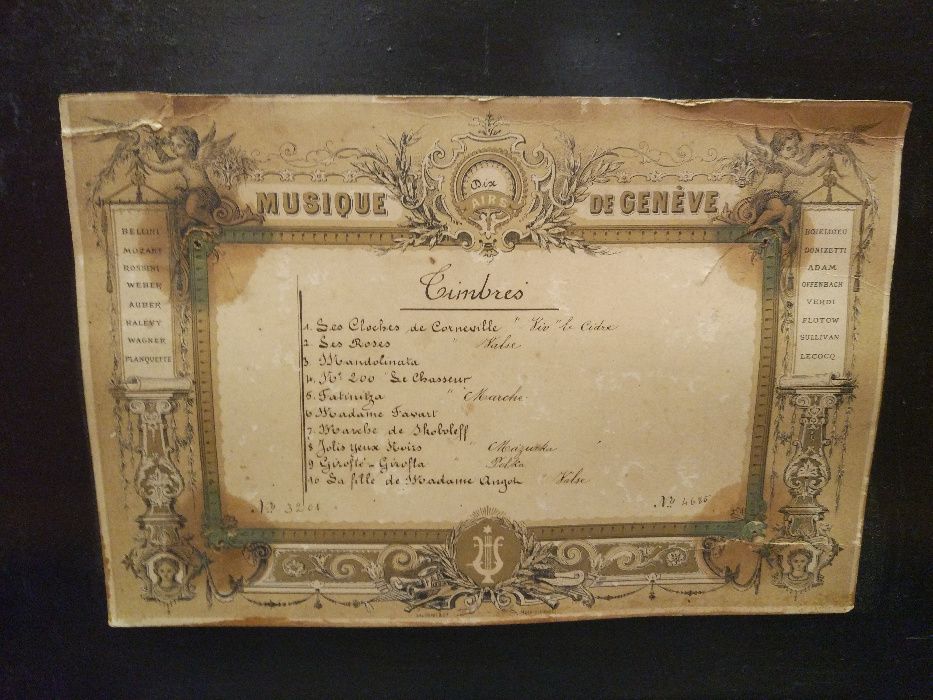 Dix
AIRS
MUSIQUE DE GENÈVE
BELLINI
MOZART
ROSSINI
WEBER
AUBER
HALEVY
WAGNER
PLANQUETTE
BOIELDIEU
DONIZETTI
ADAM
OFFENBACH
VERDI
FLOTOW
SULLIVAN
LECOCQ
Timbres
1. Les Cloches de Corneville " Viv' le Cidre
2. Les Roses " Valse
3. Mandolinata
4. Nº 200 Le Chasseur
5. Fatinitza " Marche
6. Madame Favart
7. Marche de Skobeleff
8 Jolis yeux Noirs " Mazurka
9 Giroflé-Girofla " Polka
10 La fille de Madame Angot " Valse
Nº 3201
Nº